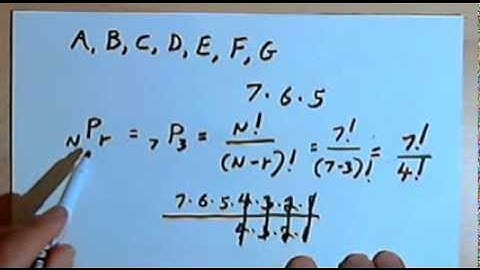 A, B, C, D, E, F, G
7 · 6 · 5
NPr = 7P3 = N! / (N-r)! = 7! / (7-3)! = 7! / 4!
7 · 6 · 5 · 4 · 3 · 2 · 1
4 · 3 · 2 · 1